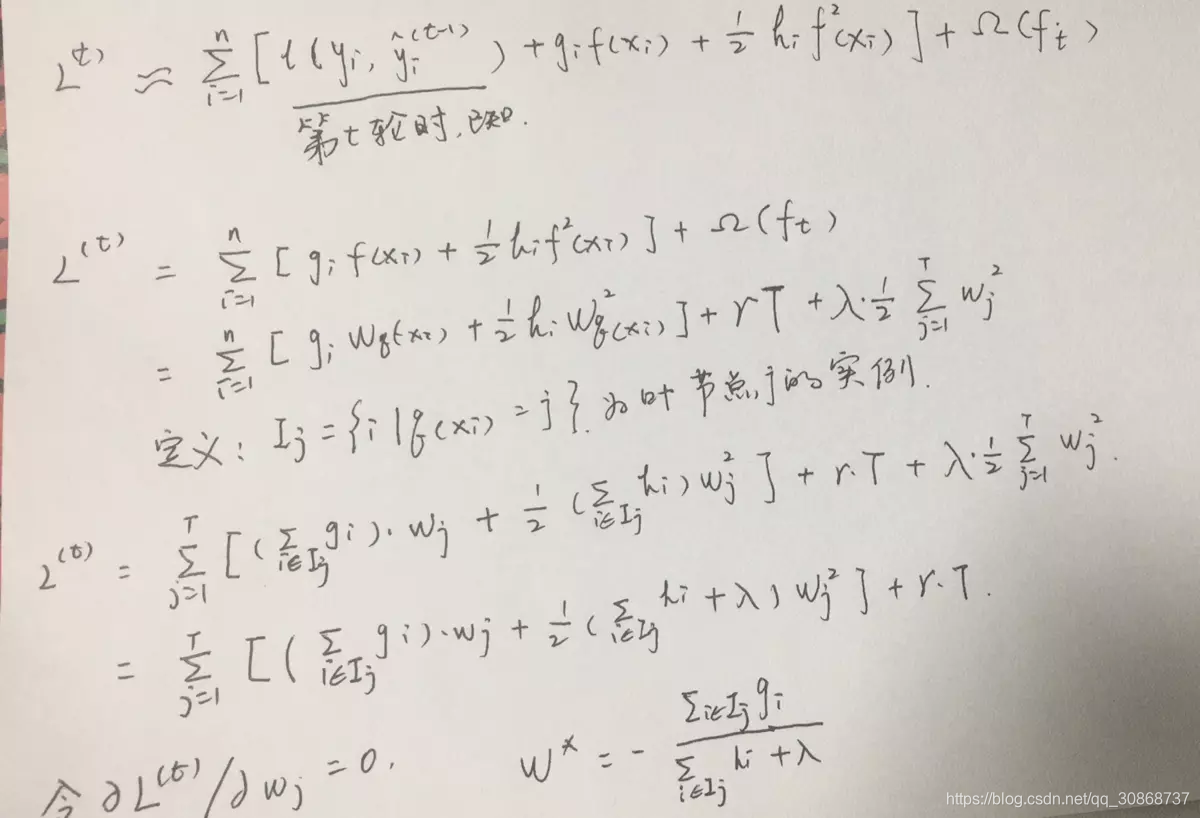 L^{t)} ≈ Σ_{i=1}^{n} [ l(y_i, ŷ_i^{(t-1)}) + g_i f(x_i) + 1/2 h_i f²(x_i) ] + Ω(f_t)
第t轮时,已知.
L^{(t)} = Σ_{i=1}^{n} [ g_i f(x_i) + 1/2 h_i f²(x_i) ] + Ω(f_t)
= Σ_{i=1}^{n} [ g_i w_{q(x_i)} + 1/2 h_i w²_{q(x_i)} ] + rT + λ·1/2 Σ_{j=1}^{T} w_j²
定义: I_j = {i | q(x_i) = j}. 为叶节点j的实例.
L^{(t)} = Σ_{j=1}^{T} [ (Σ_{i∈I_j} g_i)·w_j + 1/2 (Σ_{i∈I_j} h_i) w_j² ] + r·T + λ·1/2 Σ_{j=1}^{T} w_j².
= Σ_{j=1}^{T} [ (Σ_{i∈I_j} g_i)·w_j + 1/2 (Σ_{i∈I_j} h_i + λ) w_j² ] + r·T.
令 ∂L^{(t)}/∂w_j = 0. w* = - (Σ_{i∈I_j} g_i) / (Σ_{i∈I_j} h_i + λ)
https://blog.csdn.net/qq_30868737